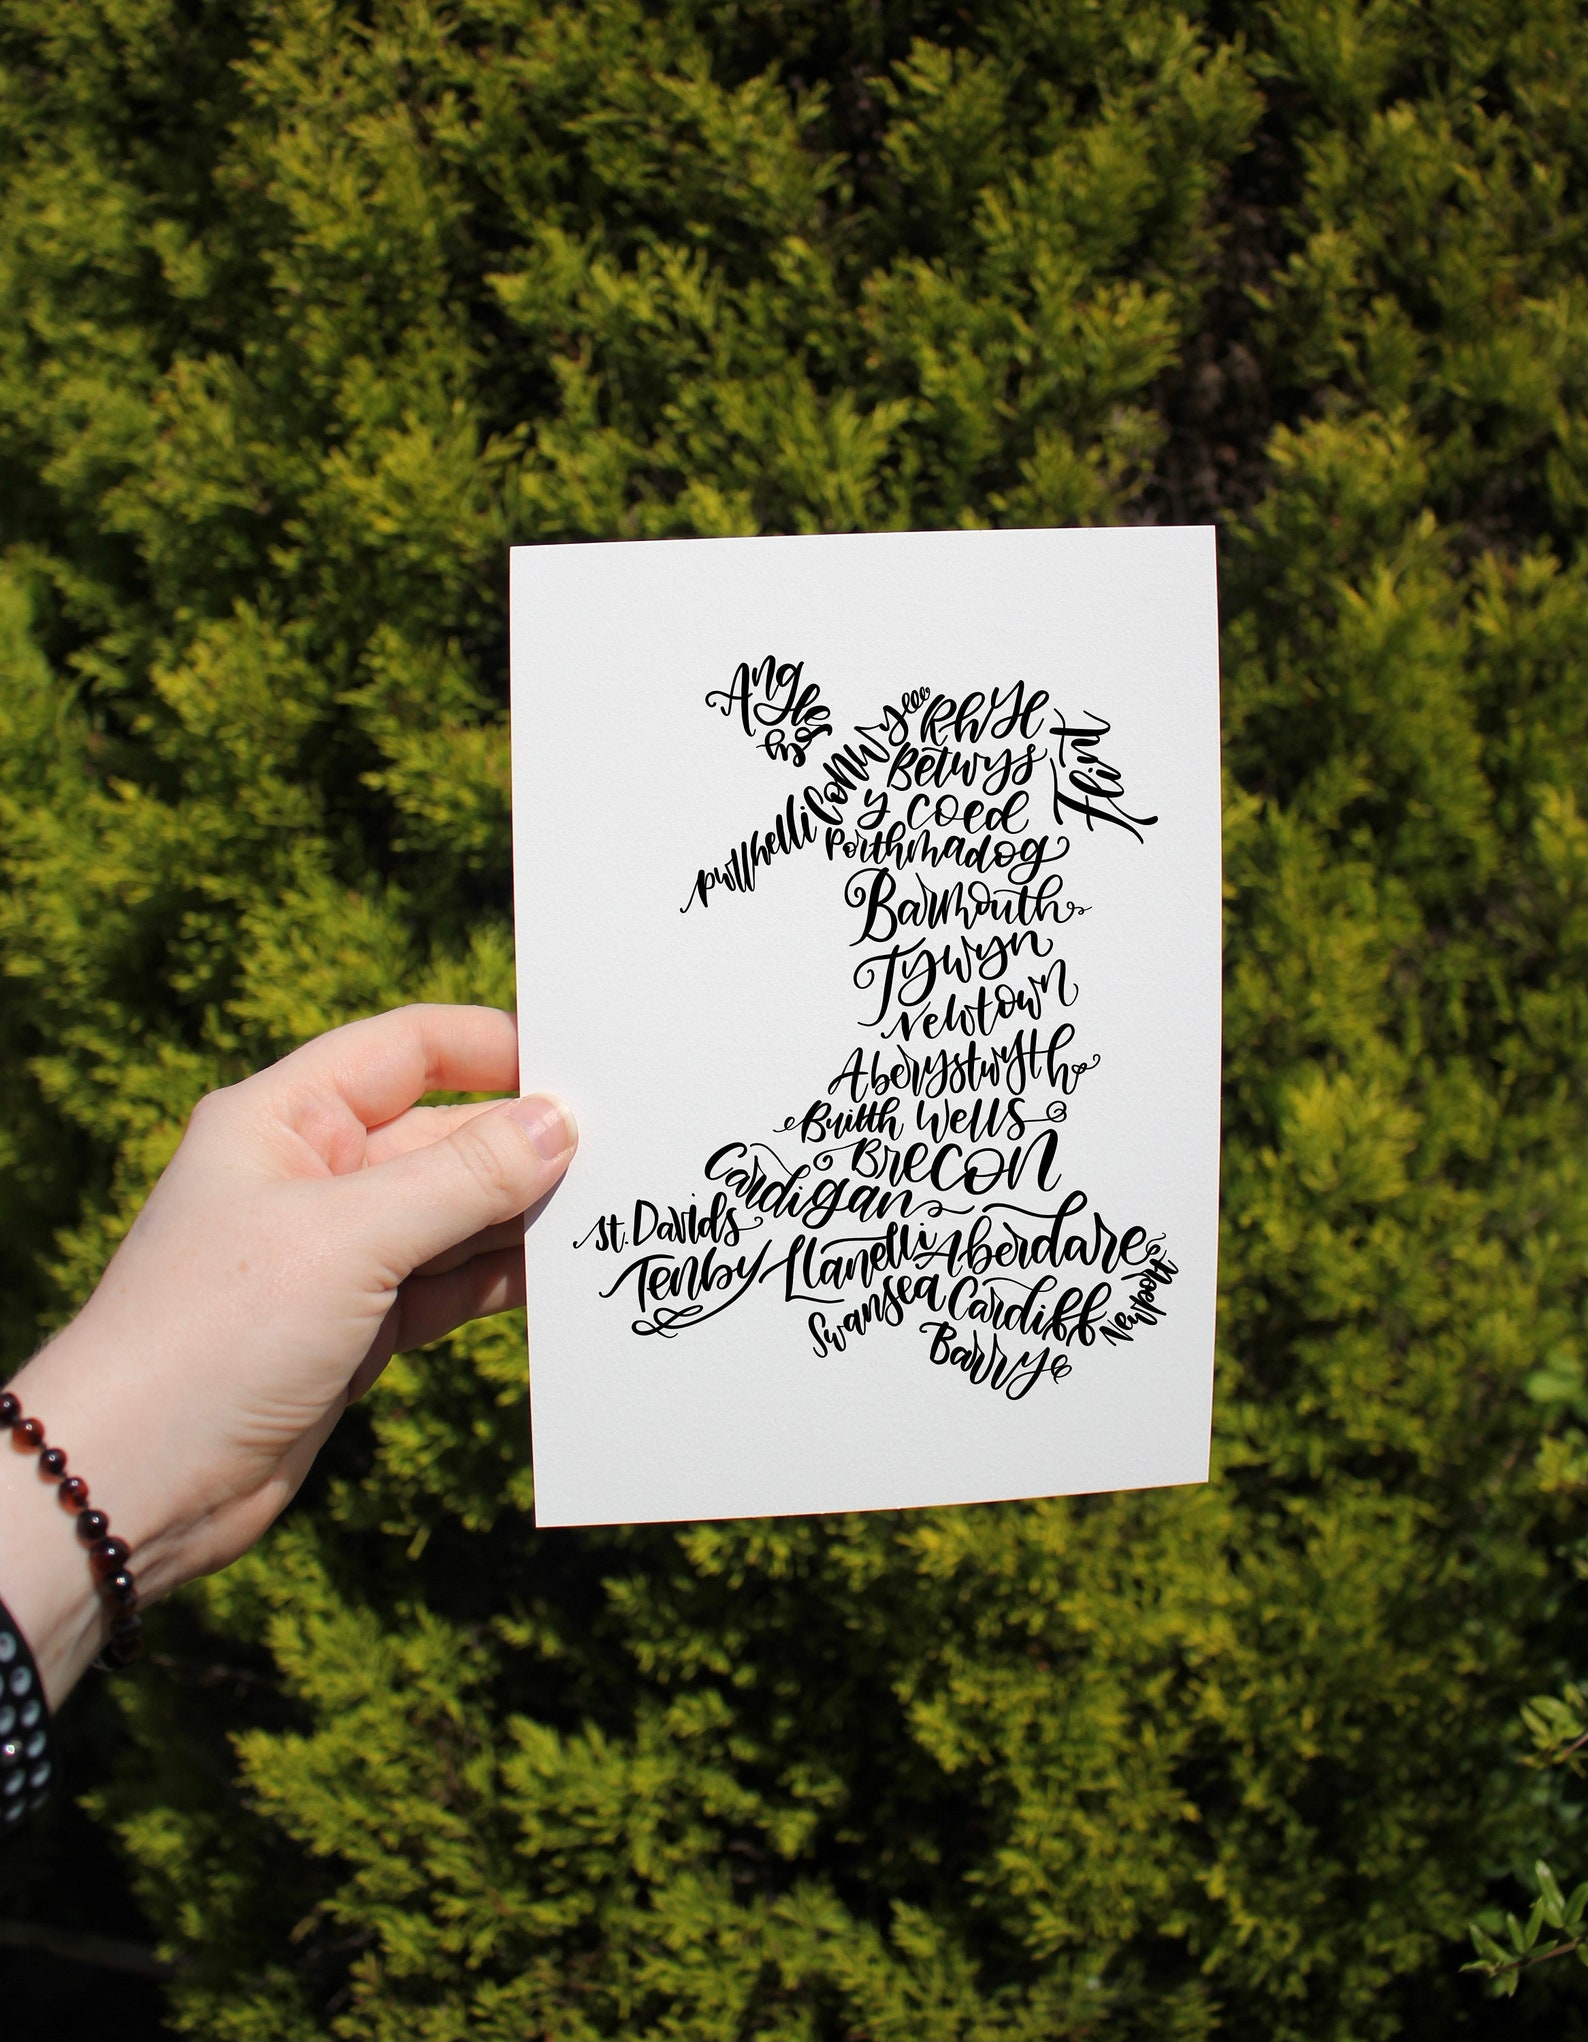 Anglesey
Conwy
Rhyl
Flint
Betwys
y coed
Pwllheli
Porthmadog
Barmouth
Tywyn
Newtown
Aberystwyth
Builth Wells
Brecon
Cardigan
St. Davids
Tenby
Llanelli
Aberdare
Swansea
Cardiff
Newport
Barry